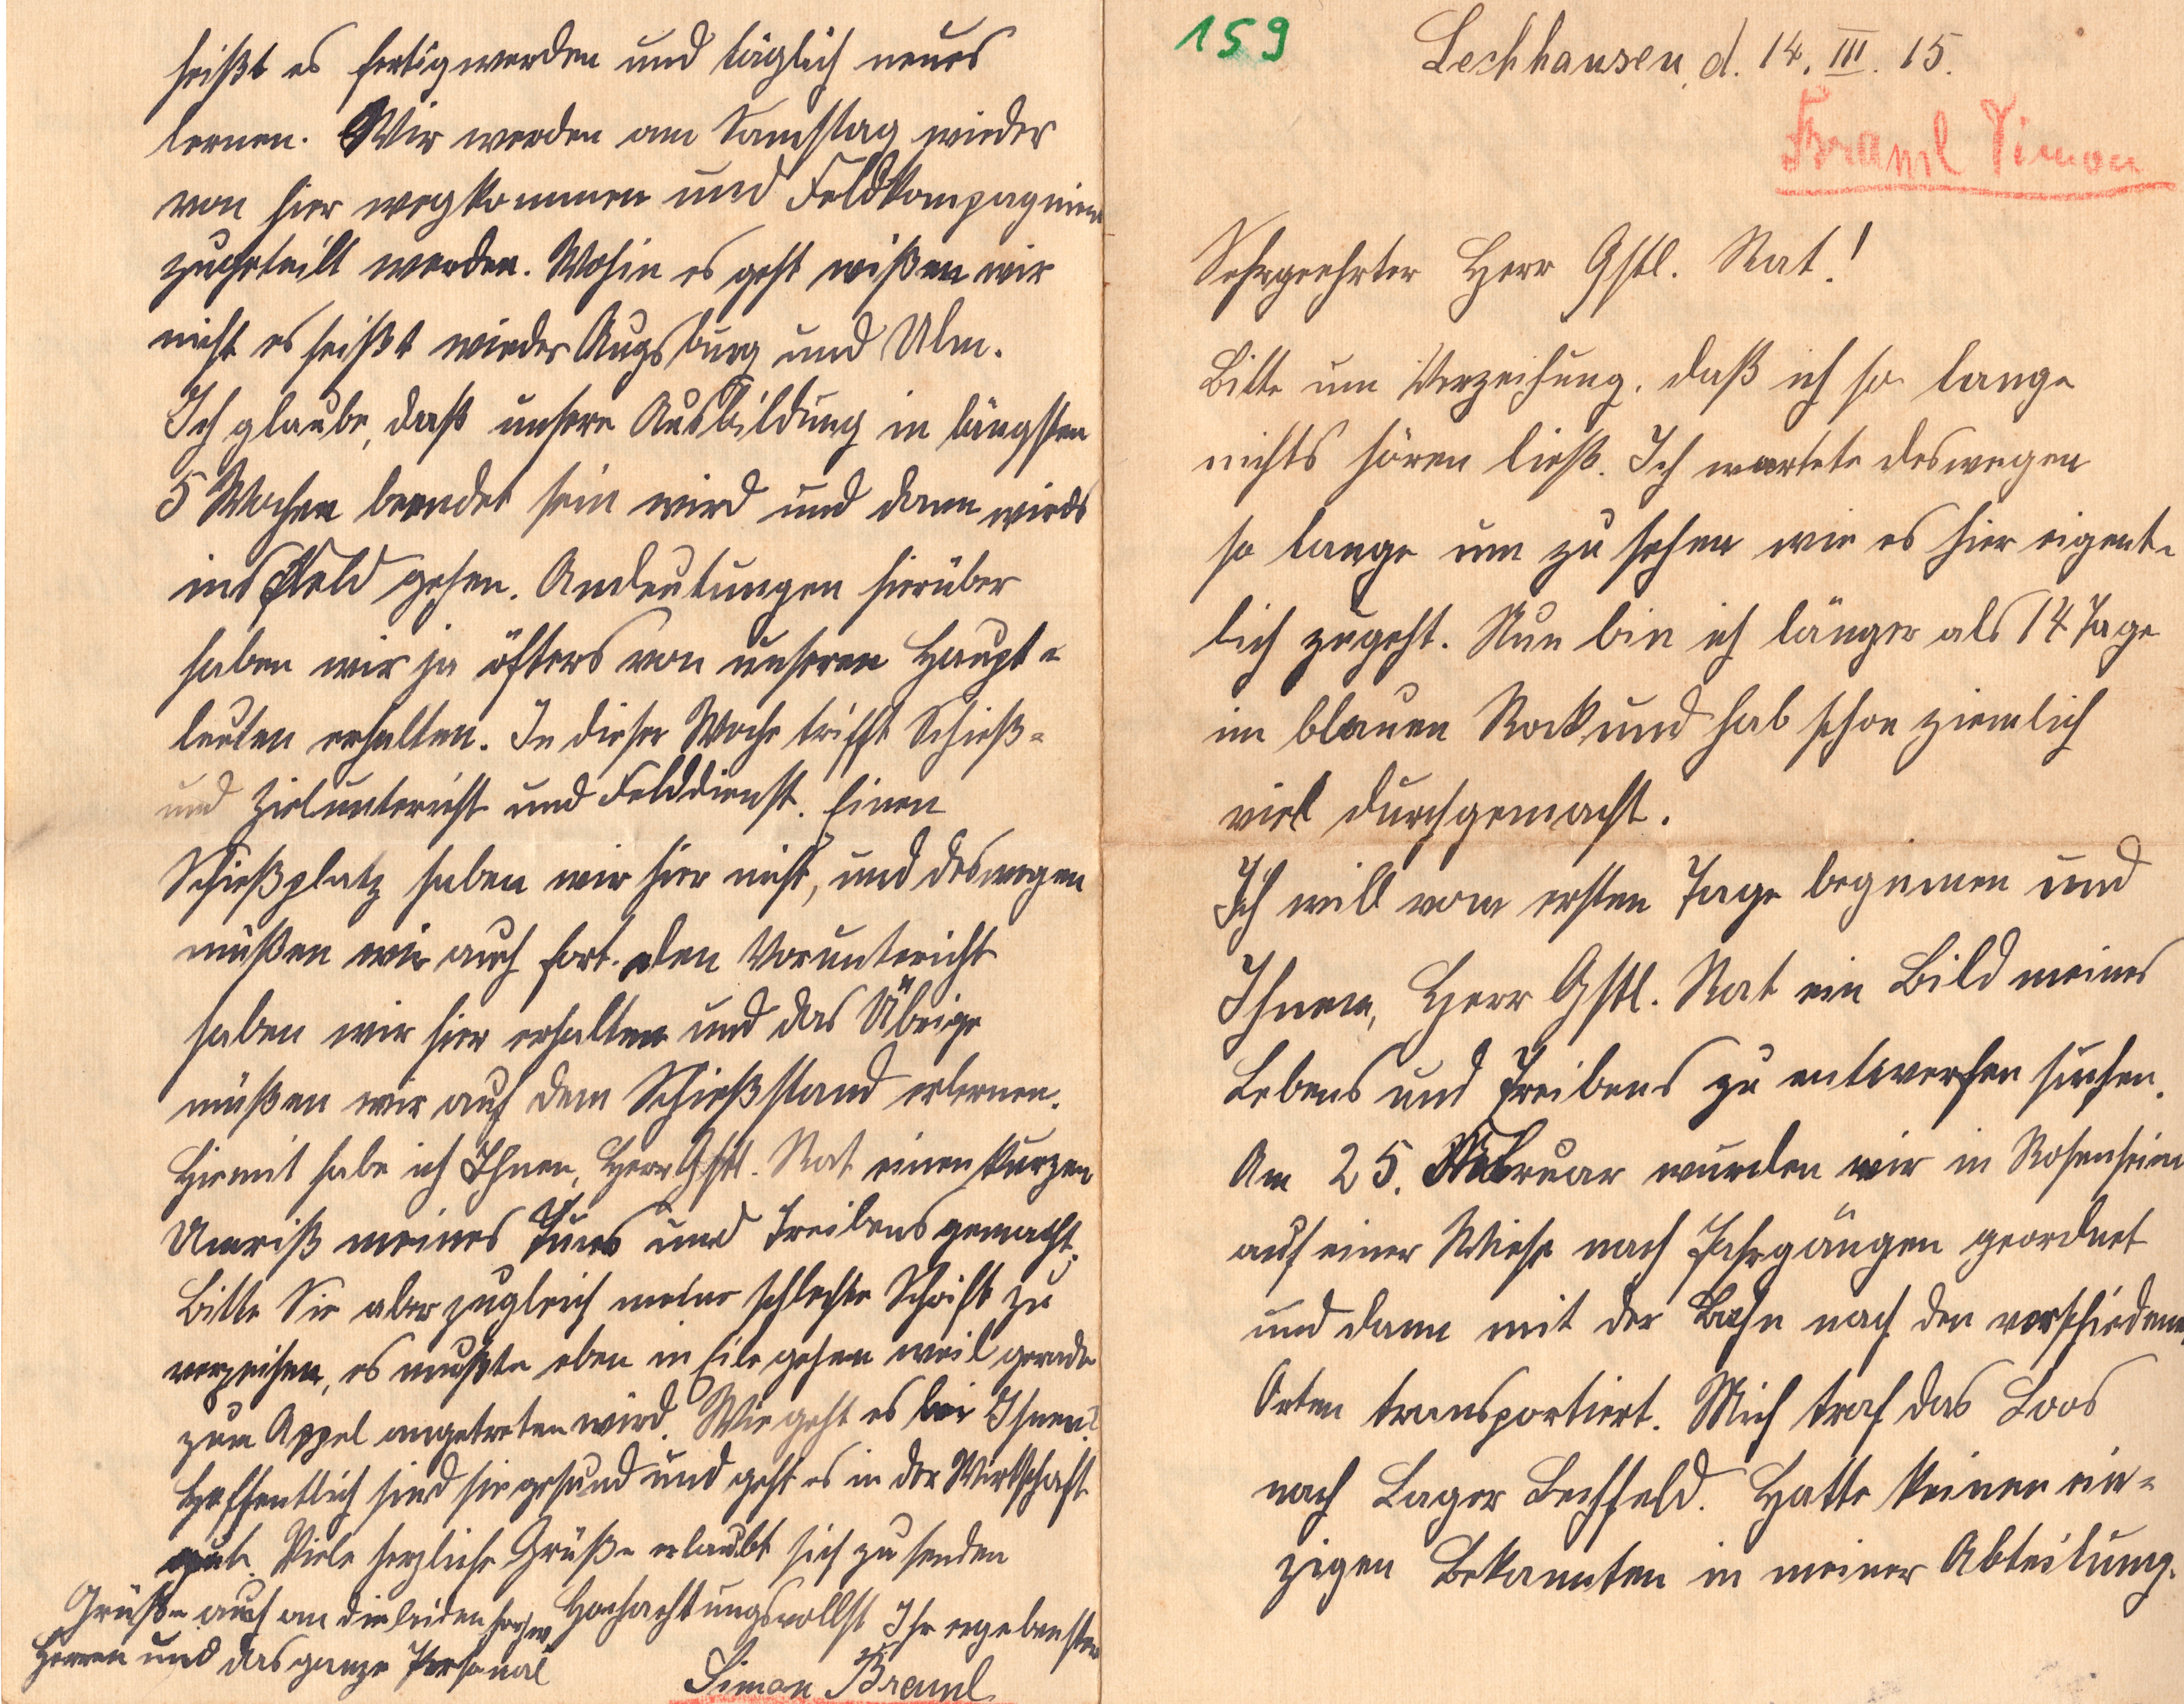 159
Lechhausen, d. 14. III. 15.
Braml Simon
Sehrgeehrter Herr Gstl. Rat!
Bitte um Verzeihung, daß ich so lange
nichts hören ließ. Ich wartete deswegen
so lange um zu sehen wie es hier eigent-
lich zugeht. Nun bin ich länger als 14 Tage
im blauen Rock und hab schon ziemlich
viel durchgemacht.
Ich will vom ersten Tage beginnen und
Ihnen, Herr Gstl. Rat ein Bild meines
Lebens und Treibens zu entwerfen suchen.
Am 25. Februar wurden wir in Rosenheim
auf einer Wiese nach Jahrgängen geordnet
und dann mit der Bahn nach den verschiedenen
Orten transportiert. Mich traf das Loos
nach Lager Lechfeld. Hatte keinen ein-
zigen Bekannten in meiner Abteilung.
heißt es fertigwerden und täglich neues
lernen. Wir werden am Samstag wieder
von hier wegkommen und Feldkompagnien
zugeteilt werden. Wohin es geht wißen wir
nicht es heißt wieder Augsburg und Ulm.
Ich glaube, daß unsere Ausbildung in längsten
5 Wochen beendet sein wird und dann wirds
ins Feld gehen. Andeutungen hierüber
haben wir ja öfters von unseren Haupt-
leuten erhalten. In dieser Woche trifft Schieß-
und Zielunterricht und Felddienst. Einen
Schießplatz haben wir hier nicht, und deswegen
müßen wir auch fort. Den Vorunterricht
haben wir hier erhalten und das Übrige
müßen wir auf dem Schießstand erlernen.
Hiemit habe ich Ihnen, Herr Gstl. Rat einen kurzen
Umriß meines Tuns und Treibens gemacht.
Bitte Sie aber zugleich meine schlechte Schrift zu
verzeihen, es mußte eben in Eile gehen weil gerade
zum Appel angetreten wird. Wie geht es bei Ihnen?
Hoffentlich sind sie gesund und geht es in der Wirtschaft
gut. Viele herzliche Grüße erlaubt sich zu senden
Hochachtungsvollst Ihr ergebenster
Simon Braml
Grüße auch an die beiden
Herren und das ganze Personal